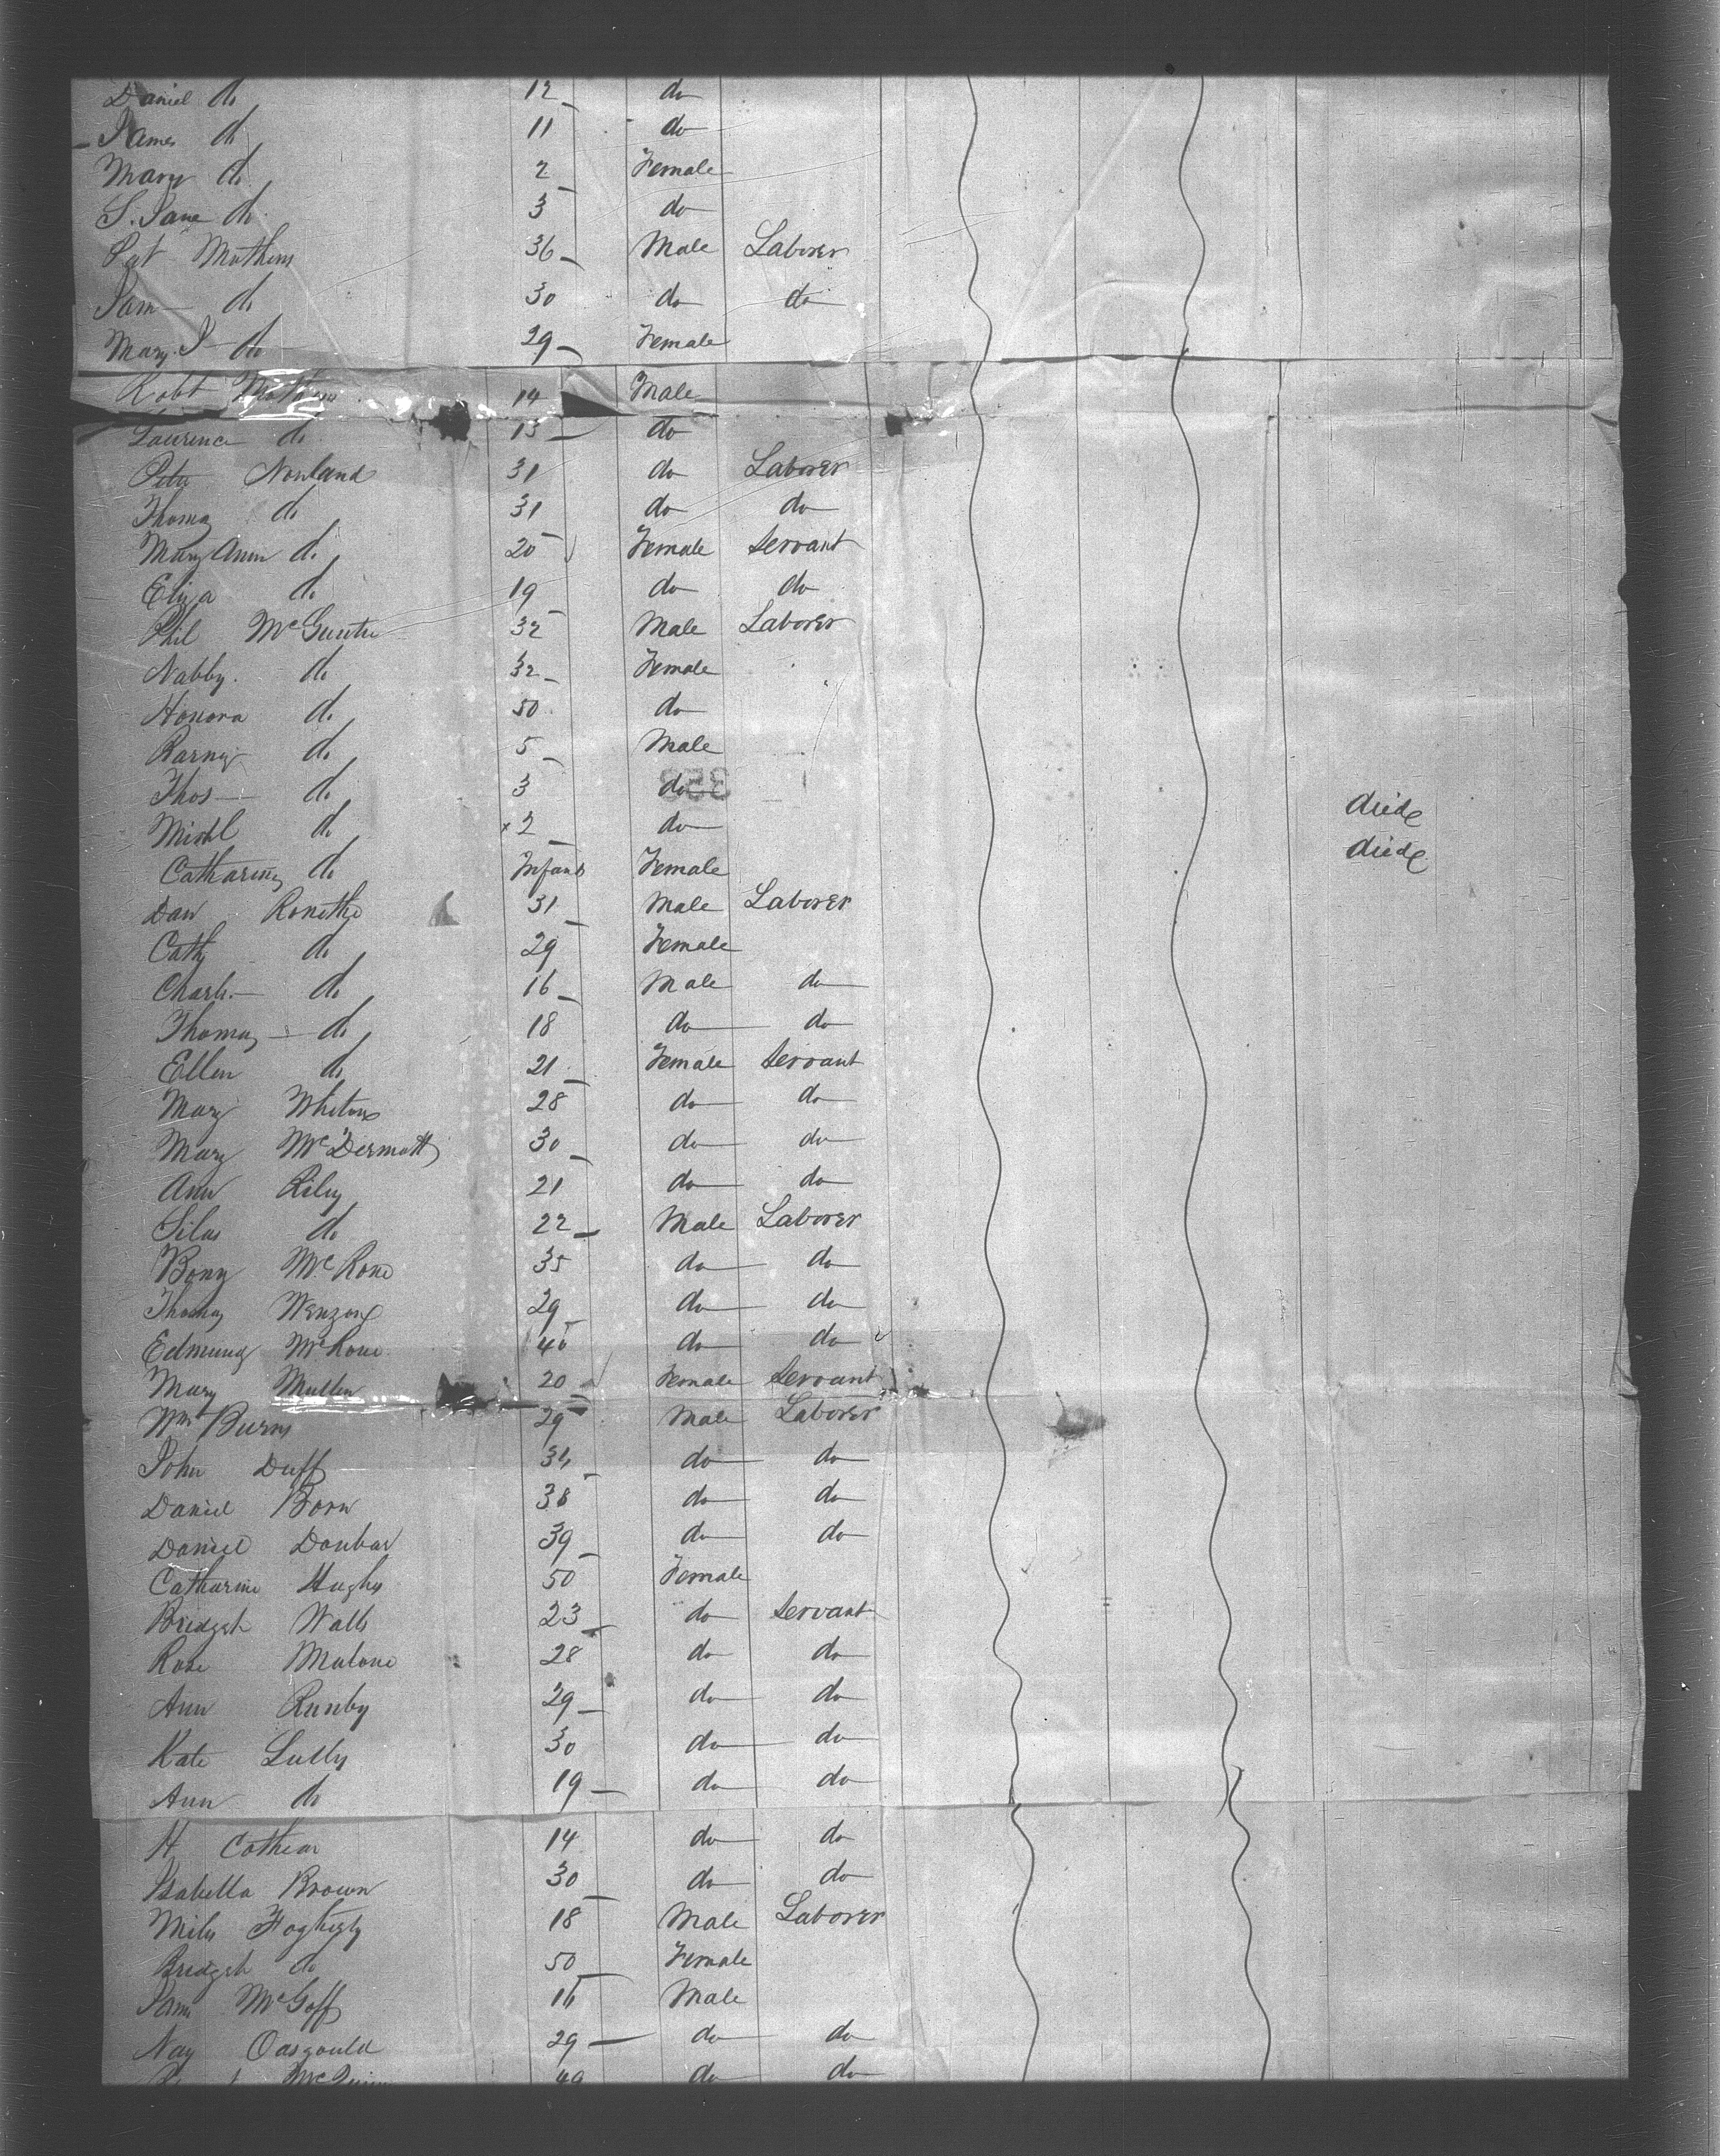 Daniel do 12 do
James do 11 do
Mary do 2 Female
S. Jane do 3 do
Pat Mathews 36 Male Laborer
Jam do 30 do do
Mary J do 29 Female
Robt Mathews 14 Male
Laurence do 13 do
Peter Nowland 31 do Laborer
Thomas do 31 do do
Mary Ann do 20 Female Servant
Eliza do 19 do do
Phil McGuire 32 Male Laborer
Nabby do 32 Female
Honora do 50 do
Barney do 5 Male
Thos do 3 do
Michl do x2 do died
Catharine do Infant Female died
Dan 31 Male Laborer
Cath do 29 Female
Charls do 16 Male do
Thomas do 18 do do
Ellen do 21 Female Servant
Mary 28 do do
Mary McDermott 30 do do
Ann Riley 21 do do
Silas do 22 Male Laborer
Bony McRone 35 do do
Thomas 29 do do
Edmund McRone 40 do do
Mary Mullen 20 Female Servant
Wm Burns 29 Male Laborer
John Duff 34 do do
Daniel Born 38 do do
Daniel Donbar 39 do do
Catharine Hughs 50 Female
Bridget Walls 23 do Servant
Rose Malone 28 do do
Ann 29 do do
Kate Lully 30 do do
Ann do 19 do do
H Cothear 14 do do
Isabella Brown 30 do do
Miles 18 Male Laborer
Bridget do 50 Female
McGoff 16 Male
Nay Oasgould 29 do do
49 do do